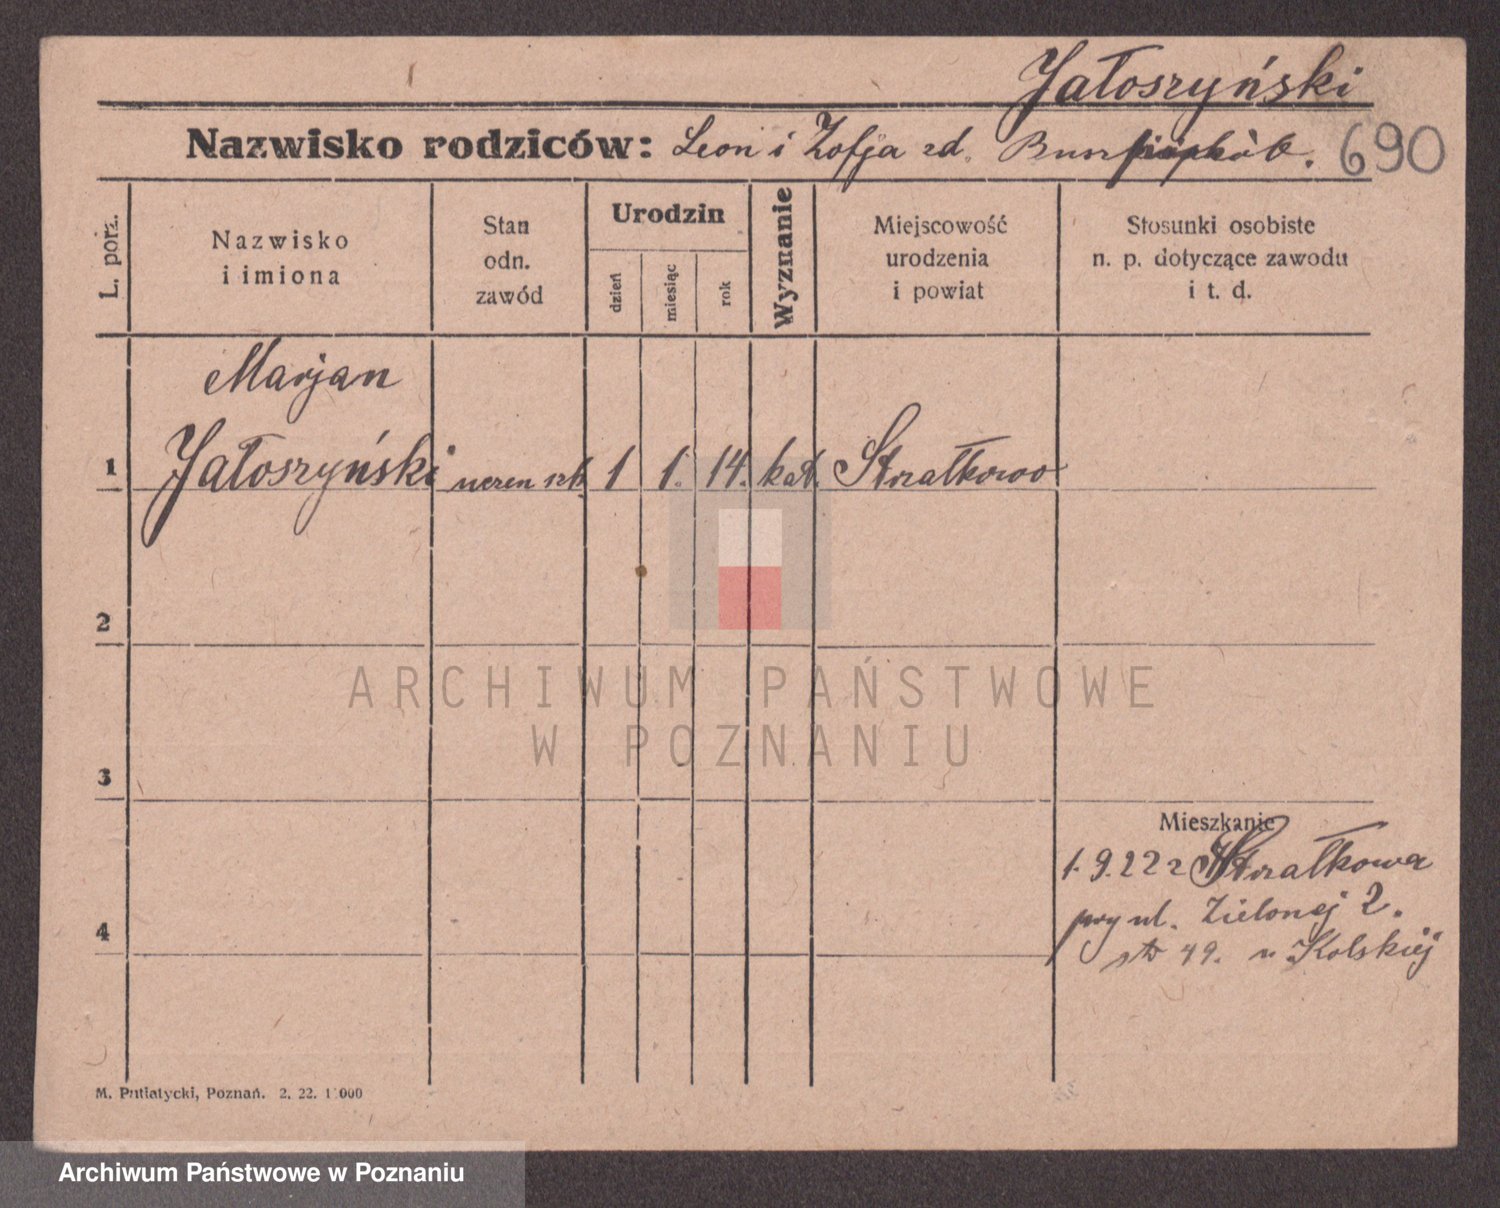 Jałoszyński
Nazwisko rodziców: Leon i Zofja zd.
690
L. porz.
Nazwisko
i imiona
Stan
odn.
zawód
Urodzin
dzień
miesiąc
rok
Wyznanie
Miejscowość
urodzenia
i powiat
Stosunki osobiste
n. p. dotyczące zawodu
i t. d.
Marjan
1 Jałoszyński uczeń szk. 1 1. 14. kat. Strzałkowo
2
ARCHIWUM PAŃSTWOWE
W POZNANIU
3
Mieszkanie
1.9.22 z Strzałkowa
przy ul. Zielonej 2.
4
49. u Kolskiej
M. Putiatycki, Poznań. 2. 22. 1000
Archiwum Państwowe w Poznaniu